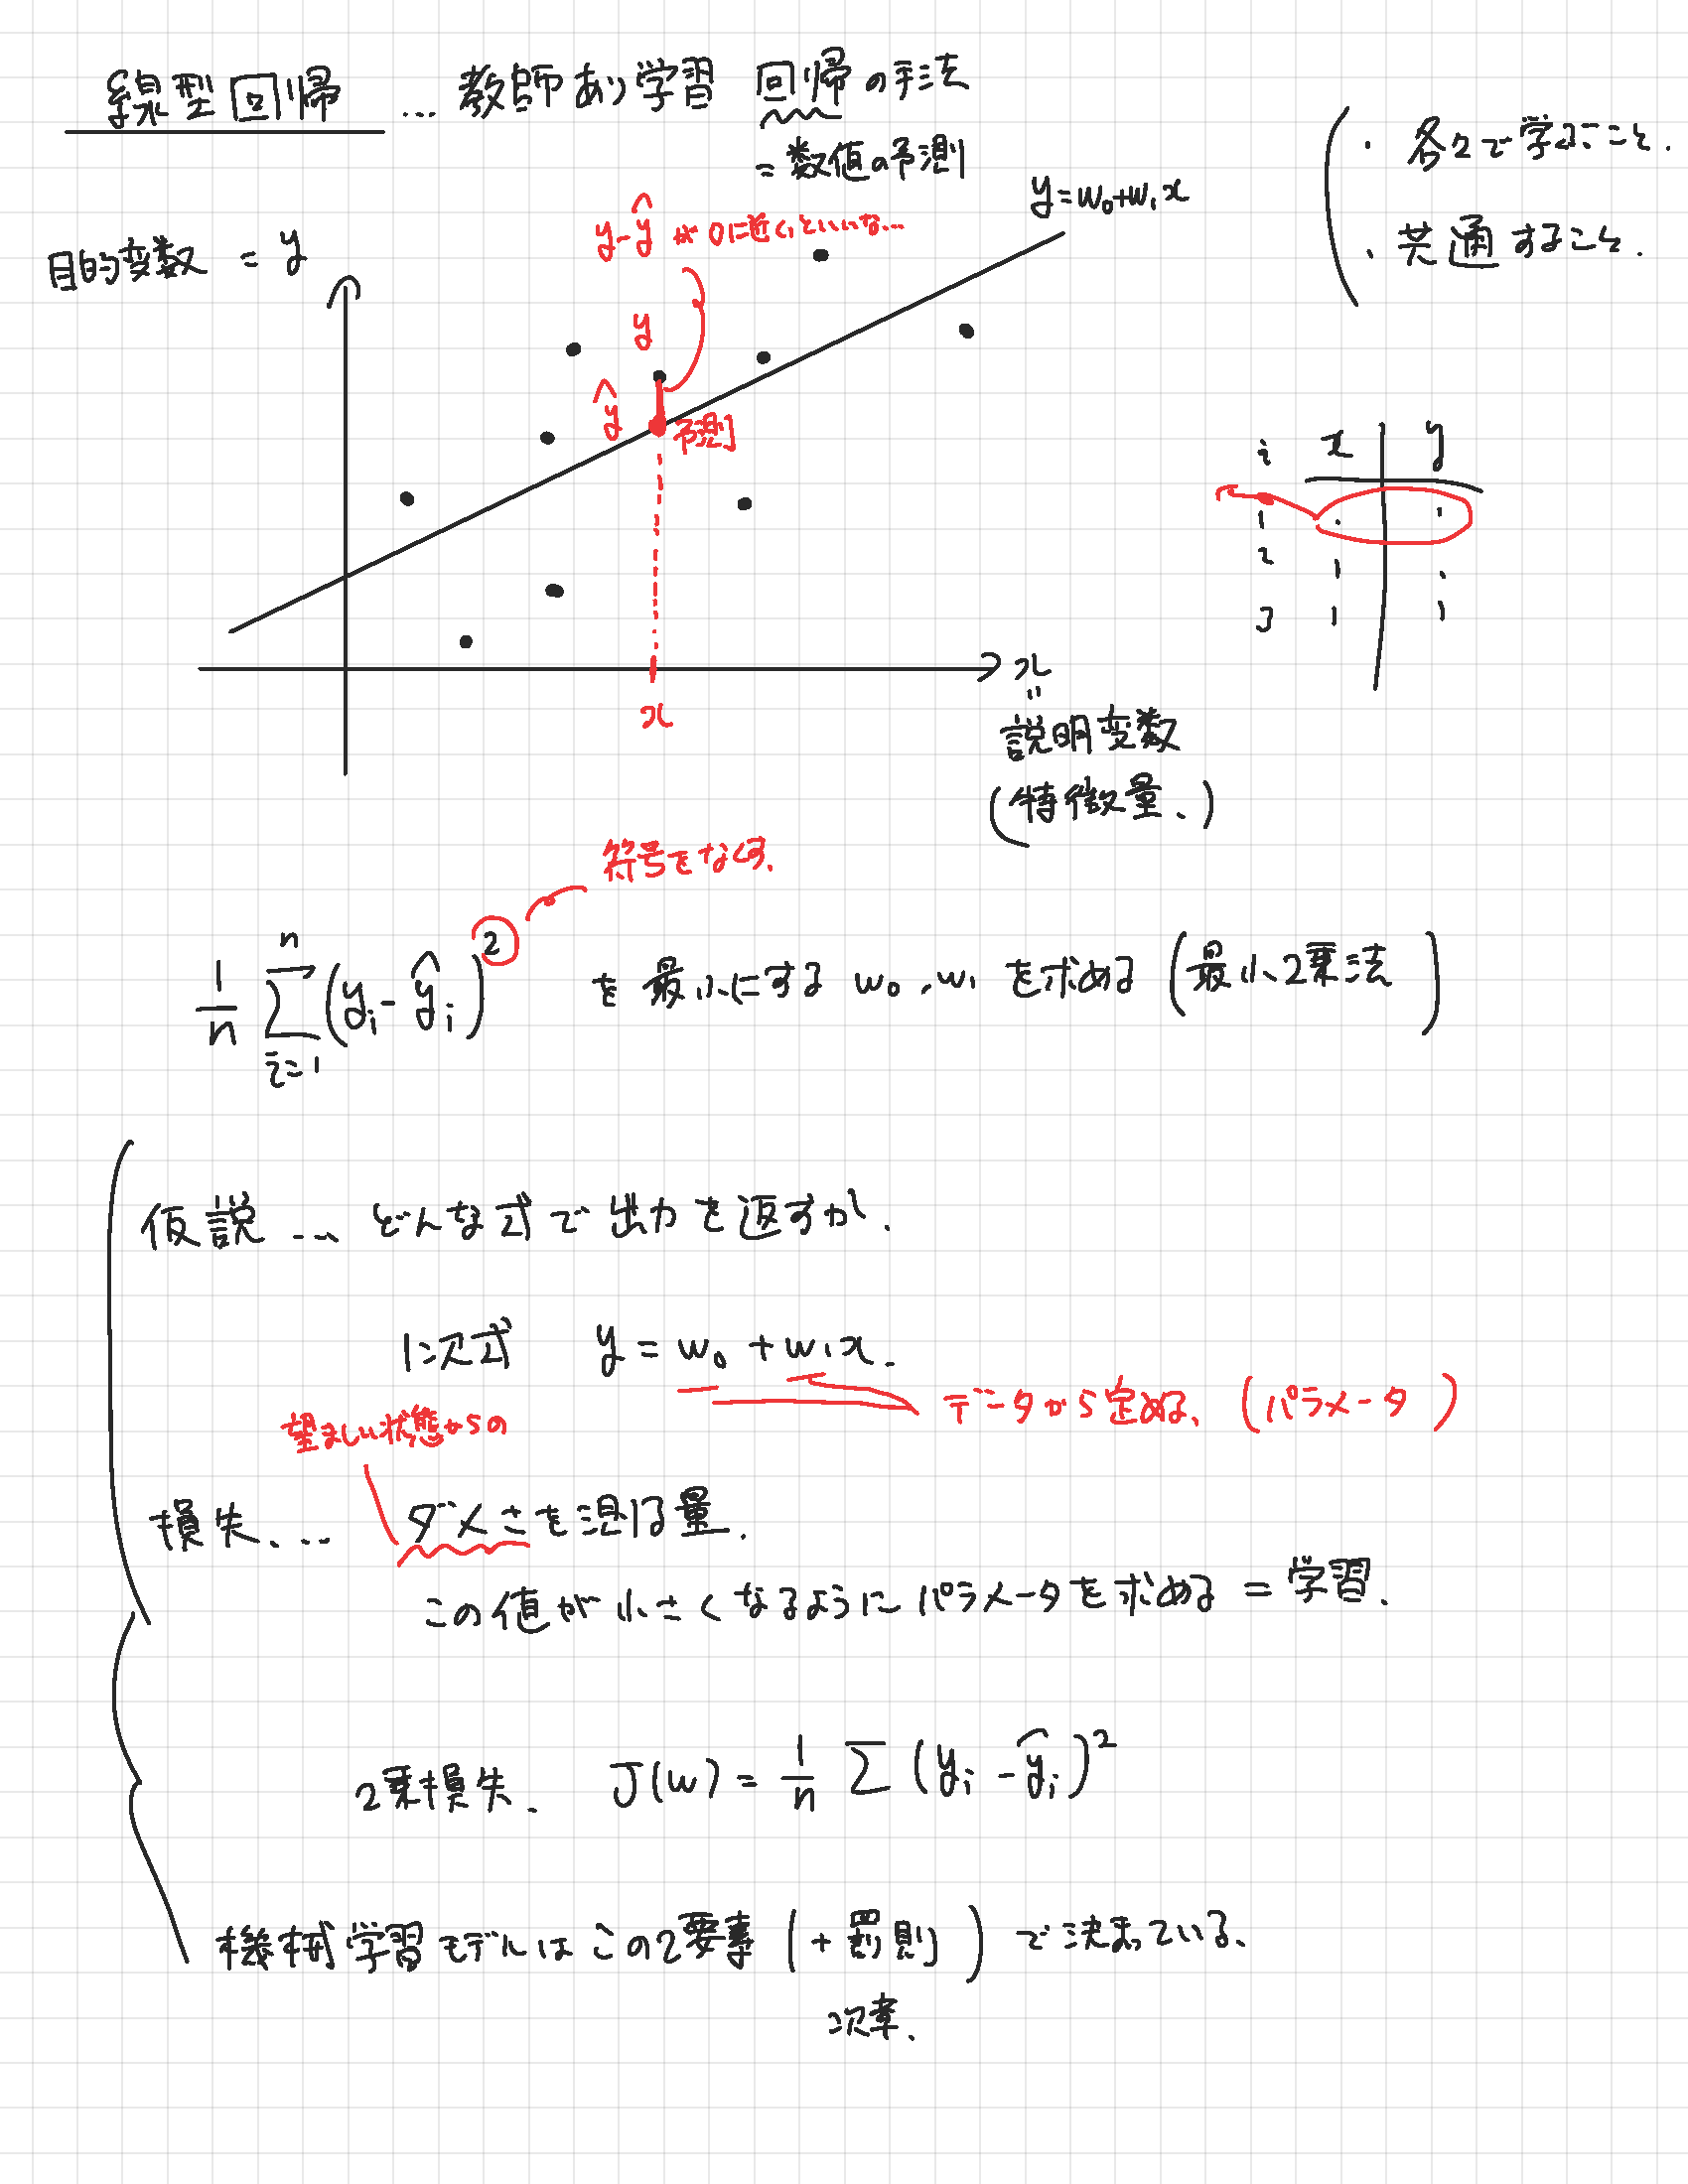 線型回帰 … 教師あり学習 回帰の手法
= 数値の予測
・各々で学ぶこと.
・共通すること.
目的変数 = y
y-ŷ が 0に近いといいな…
y=w₀+w₁x
y
ŷ
予測
x
x
=
説明変数
(特徴量、)
i x y
1
2
3
符号をなくす.
1/n Σ_{i=1}^{n} (y_i - ŷ_i)² を最小にする w₀, w₁ を求める (最小2乗法)
仮説 … どんな式で出力を返すか.
1次式 y = w₀ + w₁x.
データから定める、(パラメータ)
望ましい状態からの
損失、… ダメさを測る量.
この値が小さくなるようにパラメータを求める = 学習.
2乗損失. J(w) = 1/n Σ (y_i - ŷ_i)²
機械学習モデルはこの2要素 (+罰則) で決まっている、
次章.